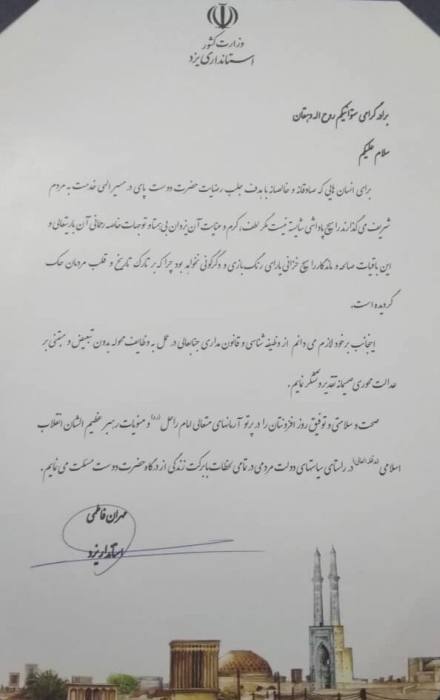 وزارت کشور
استانداری یزد
برادر گرامی ستوانیکم روح اله دهقان
سلام علیکم
برای انسان هایی که صادقانه و خالصانه با هدف جلب رضایت حضرت دوست پای در مسیر الهی خدمت به مردم
شریف می گذارند هیچ پاداشی شایسته نیست مگر لطف، کرم و عنایت آن یزدان بی همتا و توجهات خاصه رحمانی آن باریتعالی و
این باقیات صالحه و ماندگار را هیچ خزانی یارای رنگ بازی و دگرگونی نخواهد بود چرا که بر تارک تاریخ و قلب مردمان حک
گردیده است.
اینجانب بر خود لازم می دانم از وظیفه شناسی و قانون مداری جنابعالی در عمل به وظایف محوله بدون تبعیض و مبتنی بر
عدالت محوری صمیمانه تقدیر و تشکر نمایم.
صحت و سلامتی و توفیق روز افزونتان را در پرتو آرمانهای متعالی امام راحل (ره) و منویات رهبر عظیم الشان انقلاب
اسلامی (مدظله العالی) در راستای سیاستهای دولت مردمی در تمامی لحظات با برکت زندگی از درگاه حضرت دوست مسئلت می نمایم.
مهران فاطمی
استاندار یزد